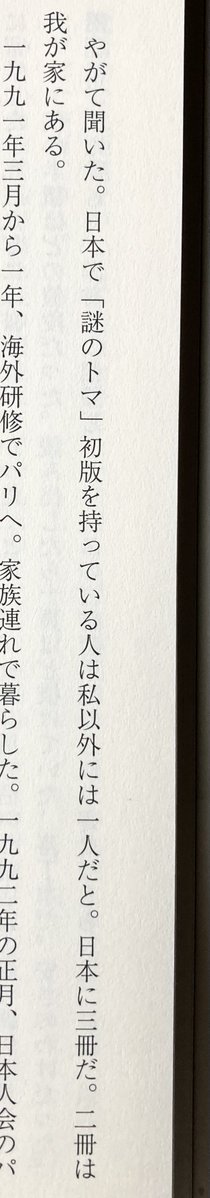 やがて聞いた。日本で「謎のトマ」初版を持っている人は私以外には一人だと。日本に三冊だ。二冊は
我が家にある。
一九九一年三月から一年、海外研修でパリへ。家族連れで暮らした。一九九二年の正月、日本人会のパ